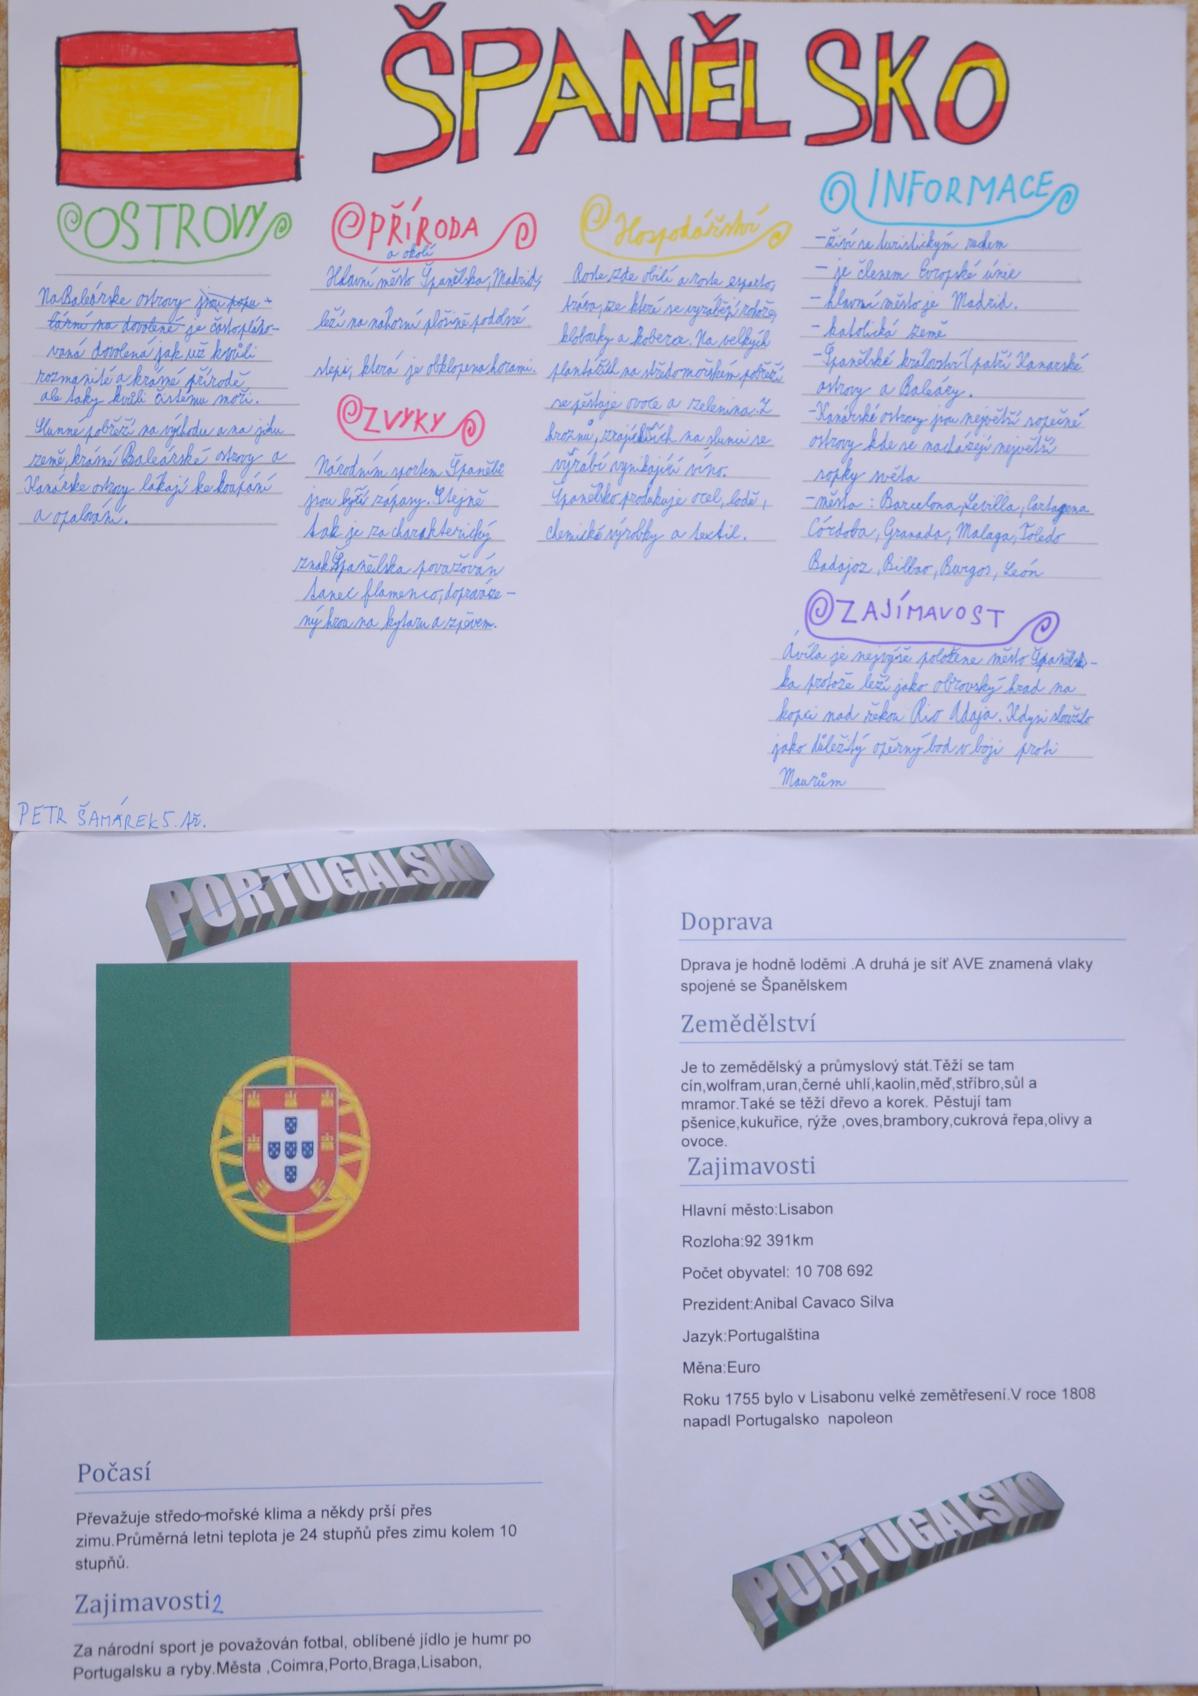 ŠPANĚLSKO
OSTROVY
Na Baleárske ostrovy jsou popu-
lární na dovolené je často pláno-
vaná dovolená jak už kvůli
rozmanité a krásné přírodě,
ale taky kvůli čistému moři.
Slunné pobřeží na východu a na jihu
země, krásné Baleárské ostrovy a
Kanárske ostrovy lákají ke koupání
a opalování.
PŘÍRODA
a okolí
Hlavní město Španělska, Madrid,
leží na náhorní plošině podobné
stepi, která je obklopena horami.
ZVYKY
Národním sportem Španělů
jsou býčí zápasy. Stejně
tak je za charakterický
znak Španělska považován
tanec flamenco, dopráváze-
ný hrou na kytaru a zpěvem.
Hospodářství
Roste zde obilí a roste esparto,
tráva, ze které se vyrábějí rohože,
klobouky a koberce. Na velkých
plantážích na středomořském pobřeží
se pěstuje ovoce a zelenina. Z
hroznů, zrajících na slunci se
výrábí vynikající víno.
Španělsko produkuje ocel, lodě,
chemické výrobky a textil.
INFORMACE
-živí se turistickým ruchem
- je členem Evropské únie
- hlavní město je Madrid.
- katolická země
-Španělské království (patří Kanarské
ostrovy a Baleáry.
-Kanárské ostrovy jsou největší sopečné
ostrovy kde se nacházejí největší
sopky světa
-města : Barcelona, Sevilla, Cartagena
Córdoba, Granada, Malaga, Toledo
Badajoz, Bilbao, Burgos, León
ZAJÍMAVOST
Ávila je nejvýše položene město Španěls-
ka protože leží jako obrovský hrad na
kopci nad řekou Rio Adaja. Kdysi sloužilo
jako důležitý opěrný bod v boji proti
Maurům
PETR ŠAMÁREK 5. tř.
PORTUGALSKO
Počasí
Převažuje středo-mořské klima a někdy prší přes
zimu.Průměrná letni teplota je 24 stupňů přes zimu kolem 10
stupňů.
Zajimavosti2
Za národní sport je považován fotbal, oblíbené jídlo je humr po
Portugalsku a ryby.Města ,Coimra,Porto,Braga,Lisabon,
Doprava
Dprava je hodně loděmi .A druhá je síť AVE znamená vlaky
spojené se Španělskem
Zemědělství
Je to zemědělský a průmyslový stát.Těží se tam
cín,wolfram,uran,černé uhlí,kaolin,měď,stříbro,sůl a
mramor.Také se těží dřevo a korek. Pěstují tam
pšenice,kukuřice, rýže ,oves,brambory,cukrová řepa,olivy a
ovoce.
Zajimavosti
Hlavní město:Lisabon
Rozloha:92 391km
Počet obyvatel: 10 708 692
Prezident:Anibal Cavaco Silva
Jazyk:Portugalština
Měna:Euro
Roku 1755 bylo v Lisabonu velké zemětřesení.V roce 1808
napadl Portugalsko napoleon
PORTUGALSKO